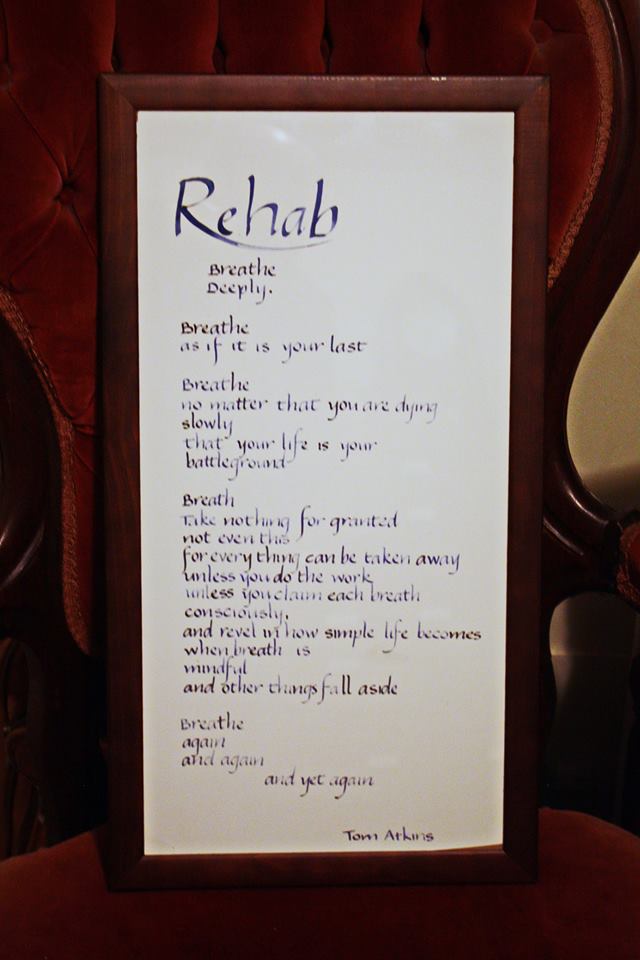 Rehab
Breathe
Deeply.
Breathe
as if it is your last
Breathe
no matter that you are dying
slowly
that your life is your
battleground
Breath
Take nothing for granted
not even this
for every thing can be taken away
unless you do the work
unless you claim each breath
consciously,
and revel in how simple life becomes
when breath is
mindful
and other things fall aside
Breathe
again
and again
and yet again
Tom Atkins